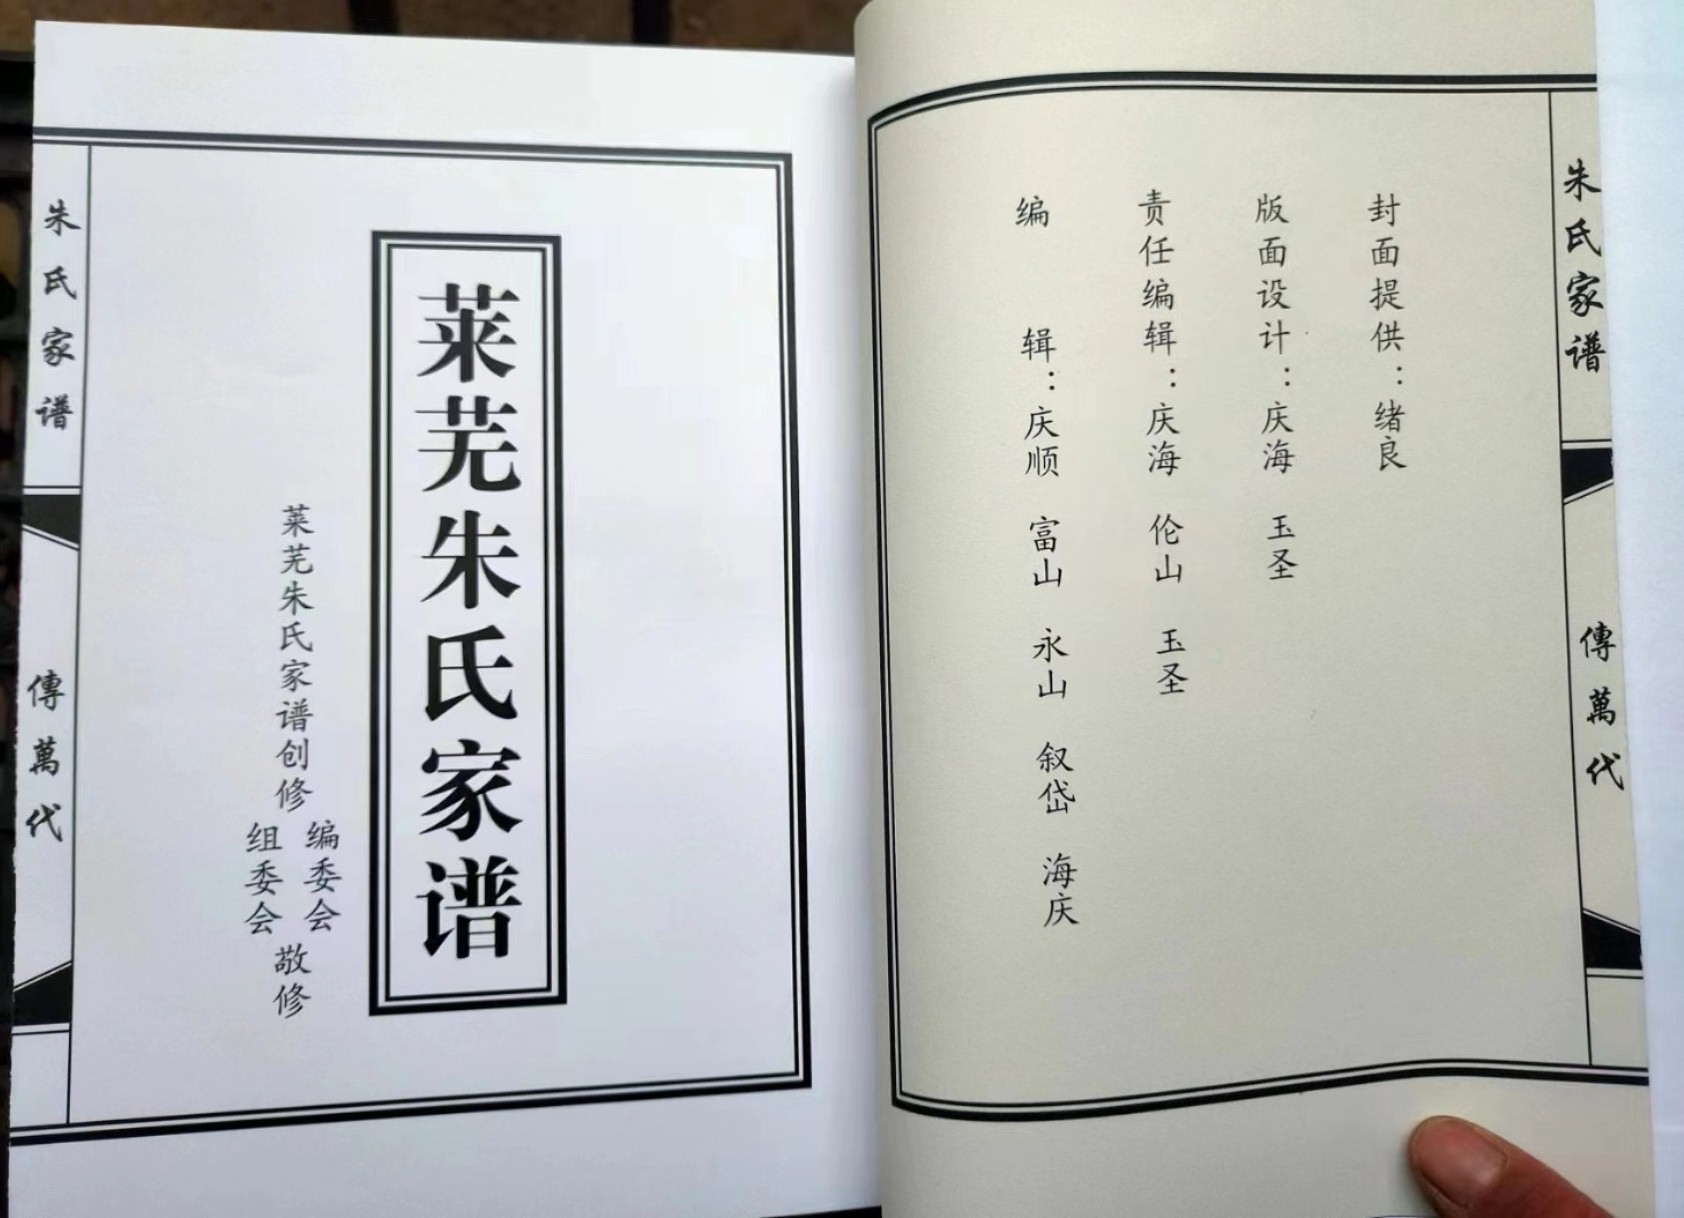 朱氏家谱
傳萬代
封面提供：绪良
版面设计：庆海 玉圣
责任编辑：庆海 伦山 玉圣
编 辑：庆顺 富山 永山 叙岱 海庆
莱芜朱氏家谱
莱芜朱氏家谱创修
编委会
组委会
敬修
朱氏家谱
傳萬代